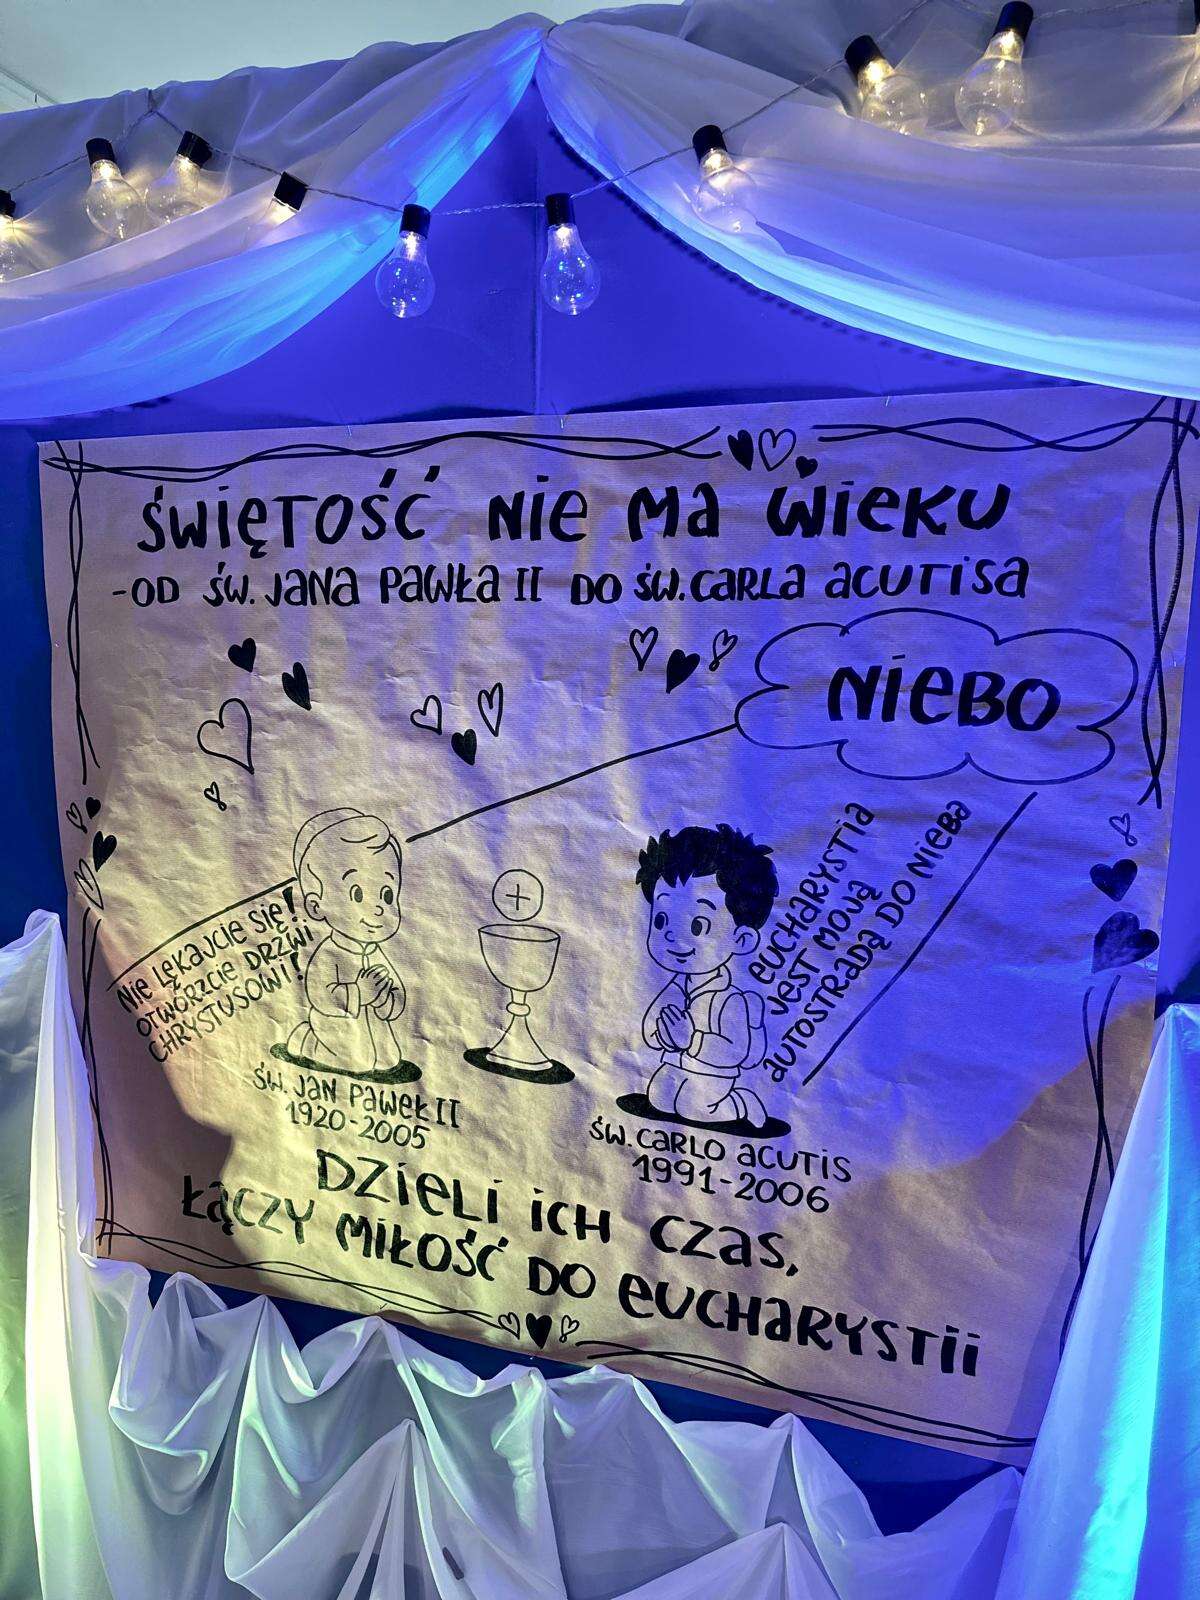 ŚWIĘTOŚĆ NIE MA WIEKU
-OD ŚW. JANA PAWŁA II DO ŚW. CARLA ACUTISA
NIEBO
NIE LĘKAJCIE SIĘ!
OTWÓRZCIE DRZWI
CHRYSTUSOWI!
EUCHARYSTIA
JEST MOJĄ
AUTOSTRADĄ DO NIEBA
ŚW. JAN PAWEŁ II
1920-2005
ŚW. CARLO ACUTIS
1991-2006
DZIELI ICH CZAS,
ŁĄCZY MIŁOŚĆ DO EUCHARYSTII